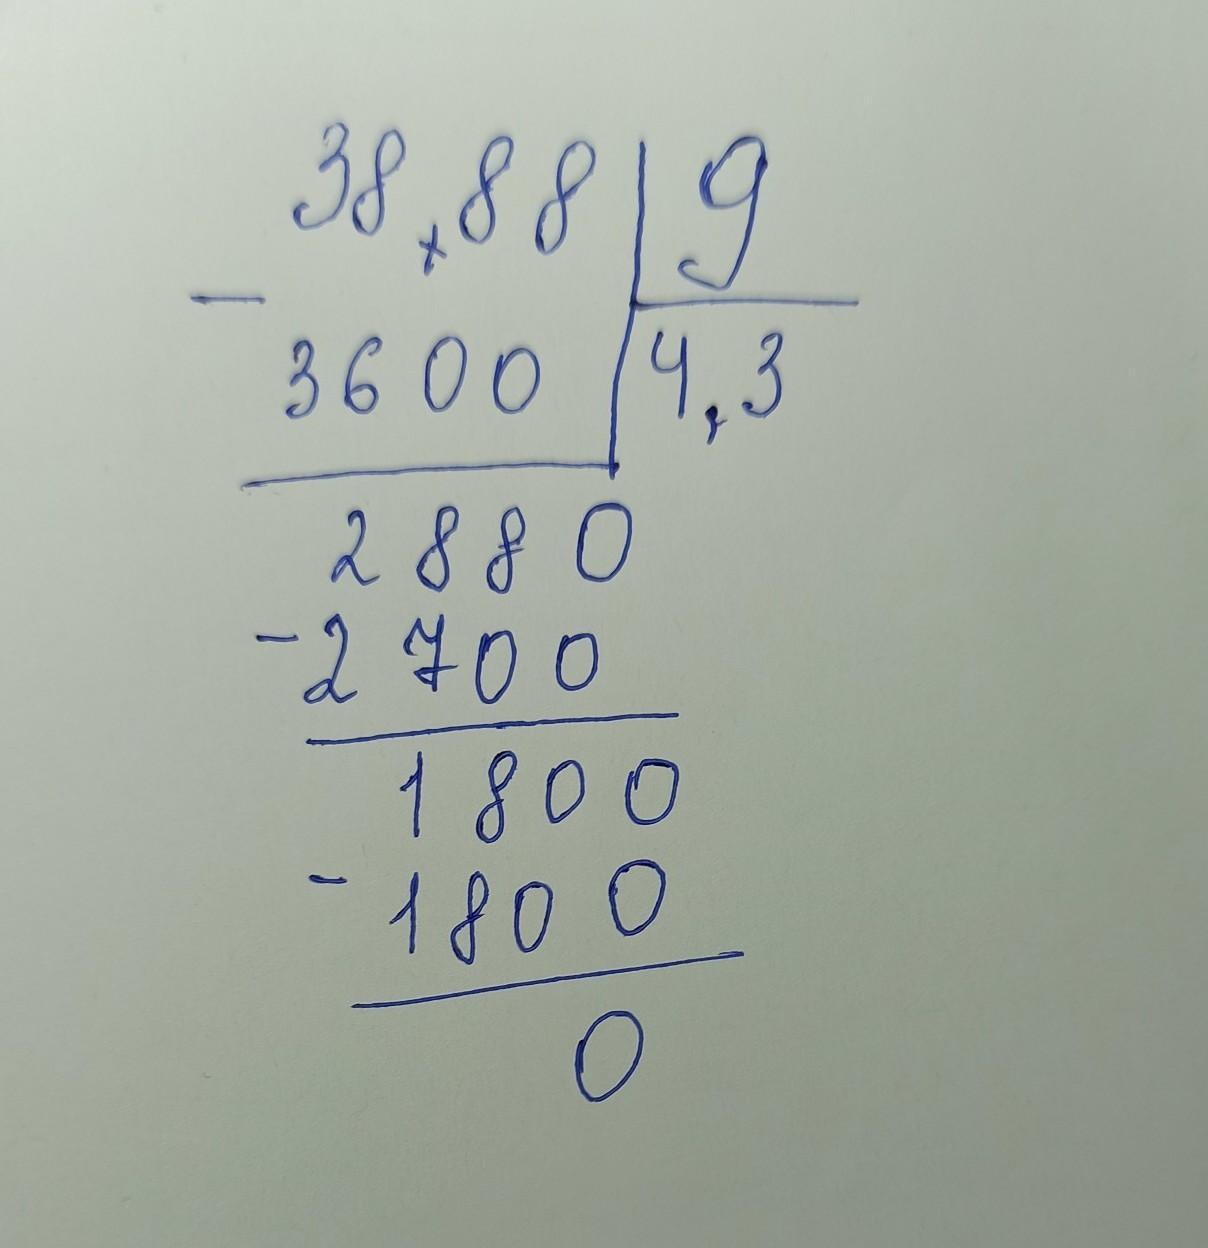 38,88 9
- 3600 4,3
2880
-2700
1800
-1800
0